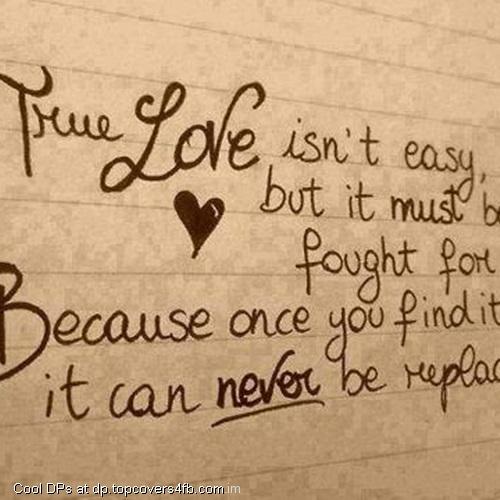 True Love isn't easy,
but it must b
fought for
Because once you find it
it can never be replac
Cool DPs at dp.topcovers4fb.com.im